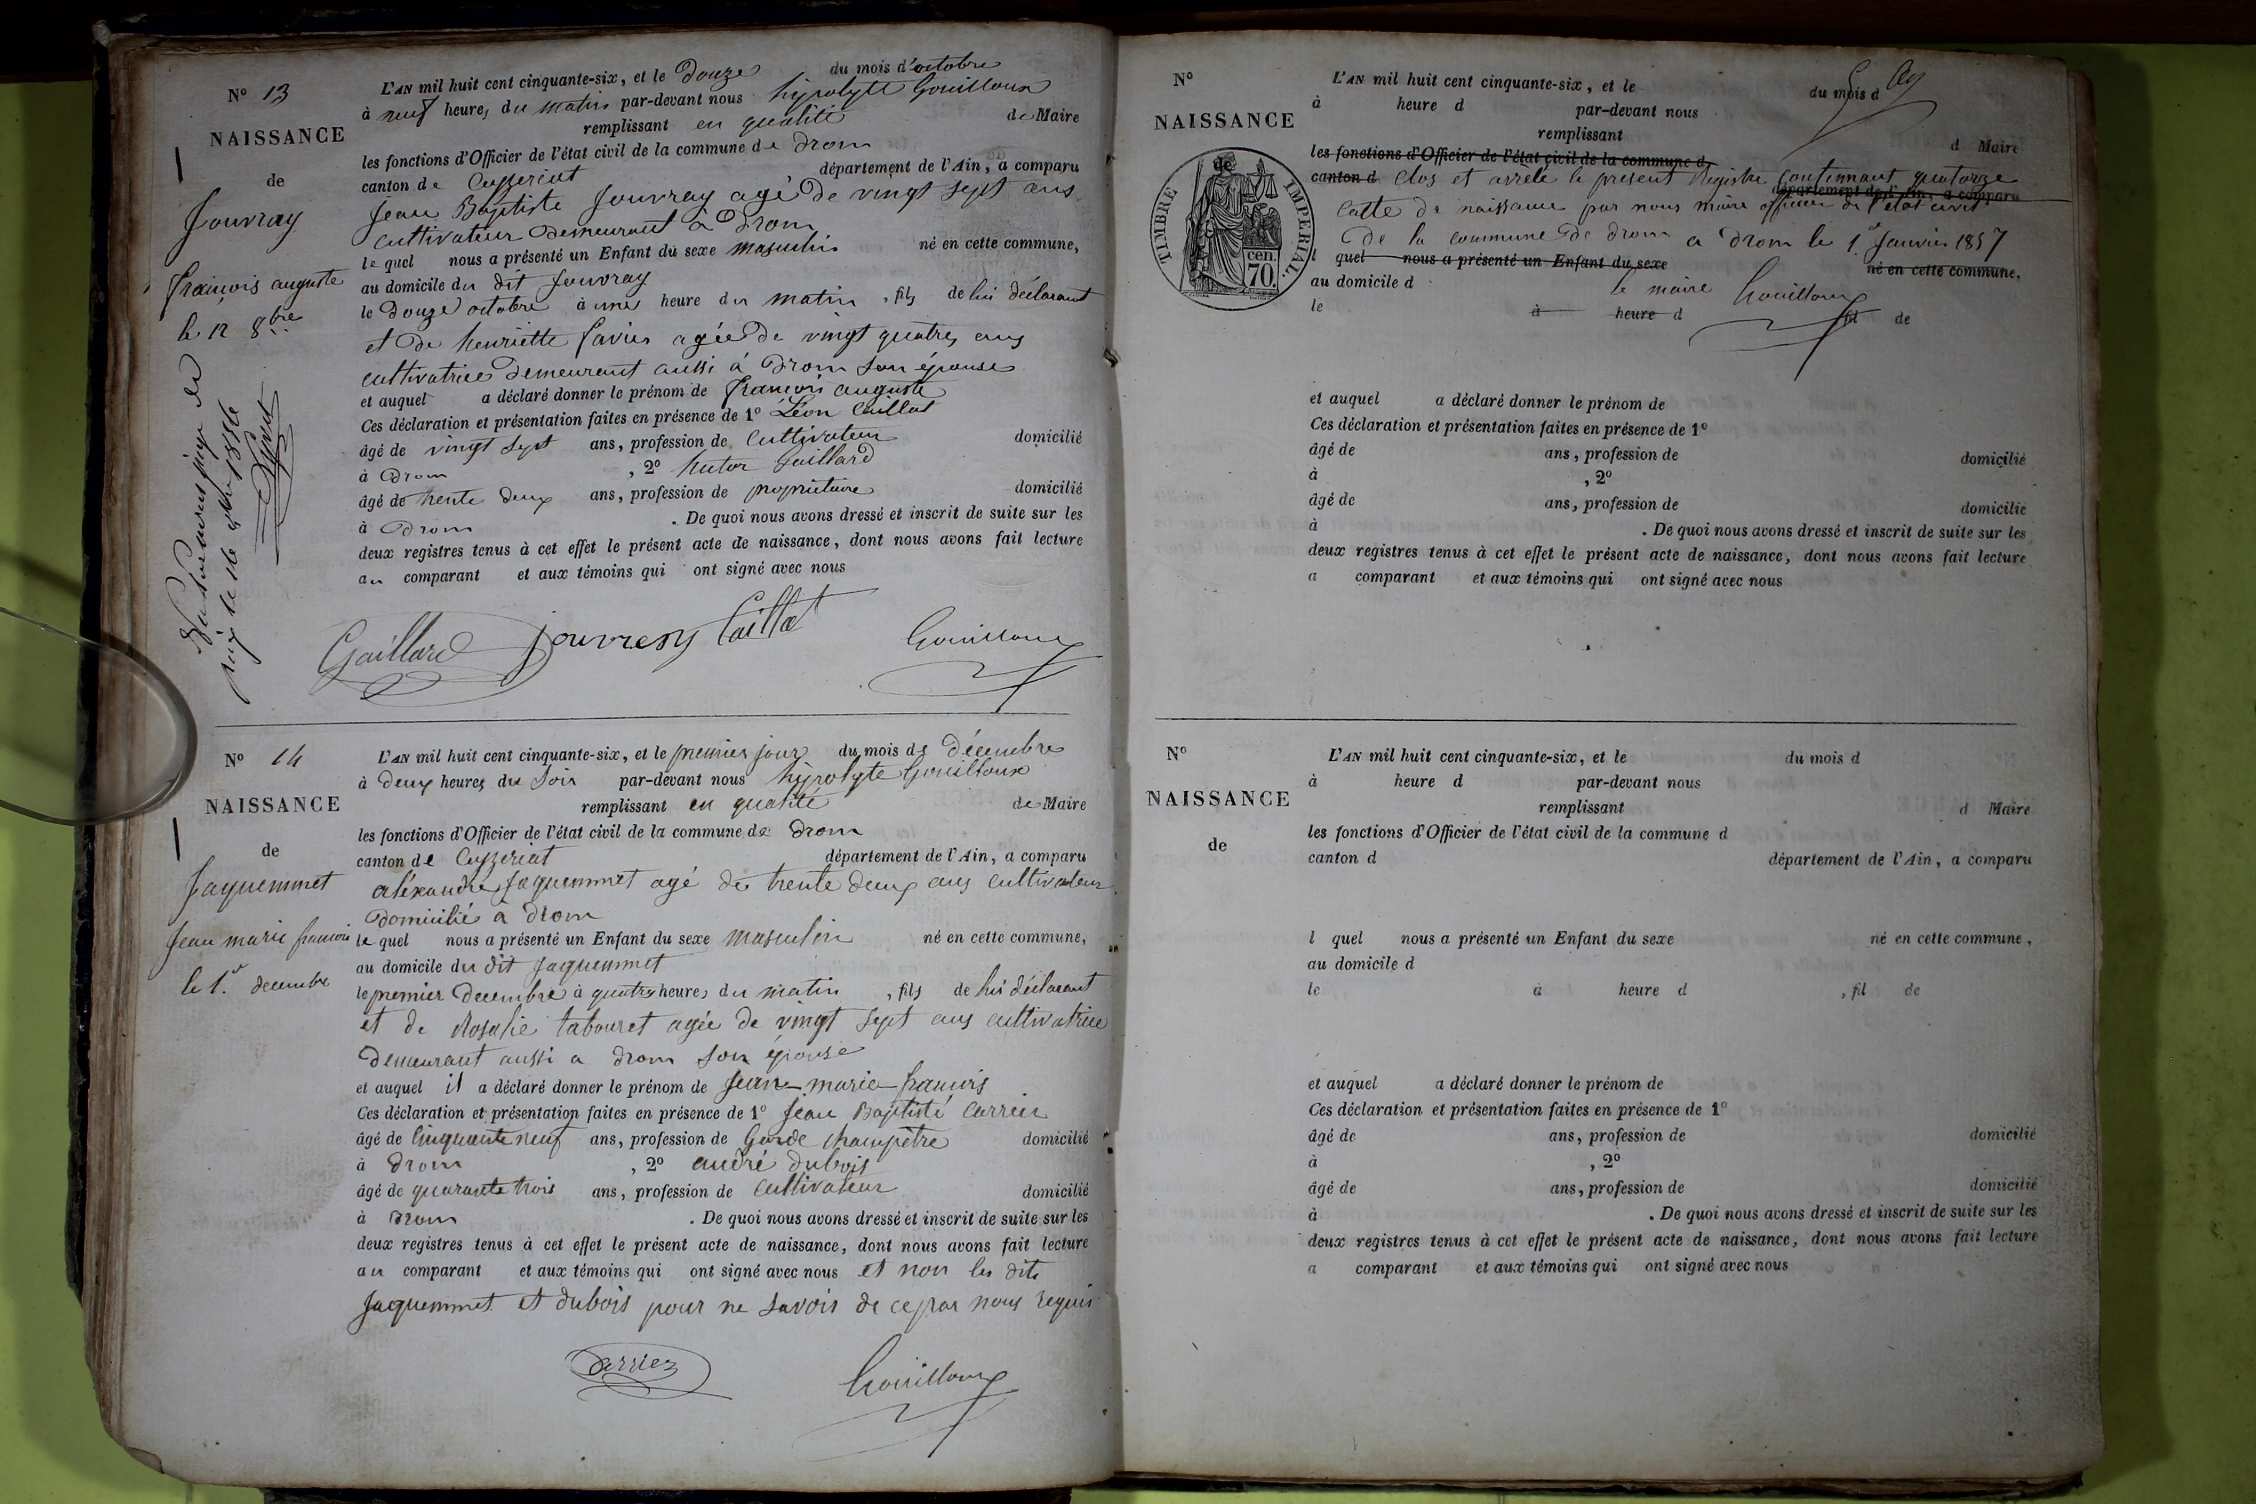 N° 13
NAISSANCE
de
Jouvray
françois auguste
le 12 8bre
L'AN mil huit cent cinquante-six, et le Douze du mois d'octobre
à neuf heures du matin par-devant nous hypolyte Gouilloux
remplissant en qualité de Maire
les fonctions d'Officier de l'état civil de la commune de Drom
canton de Ceyzeriat département de l'Ain, a comparu
Jean Baptiste Jouvray agé de vingt sept ans
cultivateur demeurant à Drom
le quel nous a présenté un Enfant du sexe masculin né en cette commune,
au domicile du dit Jouvray
le Douze octobre à une heure du matin , fils de lui déclarant
et de henriette favier agée de vingt quatres ans
cultivatrice demeurant aussi à Drom son épouse
et auquel a déclaré donner le prénom de françois auguste
Ces déclaration et présentation faites en présence de 1° Léon Caillat
âgé de vingt sept ans, profession de Cultivateur domicilié
à Drom , 2° Gaillard
âgé de trente deux ans, profession de propriétaire domicilié
à Drom . De quoi nous avons dressé et inscrit de suite sur les
deux registres tenus à cet effet le présent acte de naissance, dont nous avons fait lecture
au comparant et aux témoins qui ont signé avec nous
Gaillard Jouvray Caillat Gouilloux
N° 14
NAISSANCE
de
Jaquemmet
Jean marie francois
le 1er decembre
L'AN mil huit cent cinquante-six, et le premier jour du mois de décembre
à deux heures du soir par-devant nous hypolyte Gouilloux
remplissant en qualité de Maire
les fonctions d'Officier de l'état civil de la commune de Drom
canton de Ceyzeriat département de l'Ain, a comparu
aléxandre Jaquemmet agé de trente deux ans cultivateur
domicilié a Drom
le quel nous a présenté un Enfant du sexe masculin né en cette commune,
au domicile du dit Jaquemmet
le premier decembre à quatre heures du matin , fils de lui déclarant
et de Rosalie tabouret agée de vingt sept ans cultivatrice
demeurant aussi a Drom son épouse
et auquel il a déclaré donner le prénom de Jean marie francois
Ces déclaration et présentation faites en présence de 1° Jean Baptisté Carrier
âgé de Cinquante neuf ans, profession de Garde champètre domicilié
à Drom , 2° andré dubois
âgé de quarante trois ans, profession de Cultivateur domicilié
à Drom . De quoi nous avons dressé et inscrit de suite sur les
deux registres tenus à cet effet le présent acte de naissance, dont nous avons fait lecture
au comparant et aux témoins qui ont signé avec nous et non les dits
Jaquemmet et dubois pour ne savoir de ce par nous requis
Carrier Gouilloux
N°
NAISSANCE
de
TIMBRE IMPERIAL.
70 cen.
L'AN mil huit cent cinquante-six, et le du mois d
à heure d par-devant nous
remplissant d Maire
les fonctions d'Officier de l'état civil de la commune d
canton d Clos et arrelé le present Registre contennant quatorze
département de l'Ain, a comparu
acte de naissance par nous maire officier de l'état civil
de la commune de Drom a Drom le 1er Janvier 1857
l quel nous a présenté un Enfant du sexe né en cette commune,
au domicile d le maire Gouilloux
le à heure d fil de
et auquel a déclaré donner le prénom de
Ces déclaration et présentation faites en présence de 1°
âgé de ans, profession de domicilié
à , 2°
âgé de ans, profession de domicilié
à . De quoi nous avons dressé et inscrit de suite sur les
deux registres tenus à cet effet le présent acte de naissance, dont nous avons fait lecture
a comparant et aux témoins qui ont signé avec nous
N°
NAISSANCE
de
L'AN mil huit cent cinquante-six, et le du mois d
à heure d par-devant nous
remplissant d Maire
les fonctions d'Officier de l'état civil de la commune d
canton d département de l'Ain, a comparu
l quel nous a présenté un Enfant du sexe né en cette commune,
au domicile d
le à heure d , fil de
et auquel a déclaré donner le prénom de
Ces déclaration et présentation faites en présence de 1°
âgé de ans, profession de domicilié
à , 2°
âgé de ans, profession de domicilié
à . De quoi nous avons dressé et inscrit de suite sur les
deux registres tenus à cet effet le présent acte de naissance, dont nous avons fait lecture
a comparant et aux témoins qui ont signé avec nous